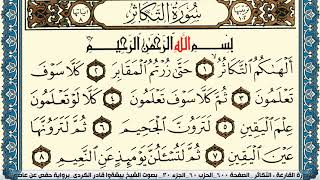 سُورَةُ التَّكَاثُرِ
بِسْمِ اللَّهِ الرَّحْمَٰنِ الرَّحِيمِ
أَلْهَىٰكُمُ التَّكَاثُرُ ١ حَتَّىٰ زُرْتُمُ الْمَقَابِرَ ٢ كَلَّا سَوْفَ
تَعْلَمُونَ ٣ ثُمَّ كَلَّا سَوْفَ تَعْلَمُونَ ٤ كَلَّا لَوْ تَعْلَمُونَ
عِلْمَ الْيَقِينِ ٥ لَتَرَوُنَّ الْجَحِيمَ ٦ ثُمَّ لَتَرَوُنَّهَا
عَيْنَ الْيَقِينِ ٧ ثُمَّ لَتُسْـَٔلُنَّ يَوْمَئِذٍ عَنِ النَّعِيمِ ٨
القارعة ، التكاثر . الصفحة ٦٠٠ الحزب ٦٠ الجزء ٣٠ . بصوت الشيخ بيشةوا قادر الكردي . برواية حفص عن عاصم